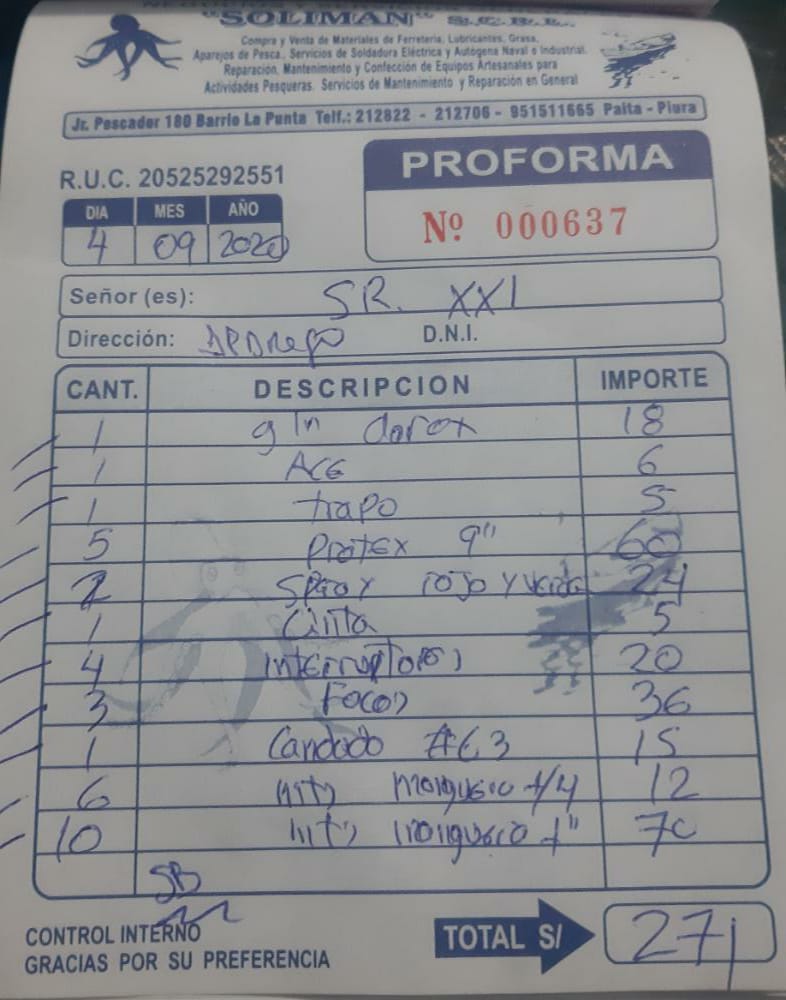 "SOLIMAN" S.C.R.L.
Compra y Venta de Materiales de Ferretería, Lubricantes, Grasa,
Aparejos de Pesca, Servicios de Soldadura Eléctrica y Autógena Naval o Industrial.
Reparación, Mantenimiento y Confección de Equipos Artesanales para
Actividades Pesqueras. Servicios de Mantenimiento y Reparación en General
Jr. Pescador 180 Barrio La Punta Telf.: 212822 - 212706 - 951511665 Paita - Piura
R.U.C. 20525292551
PROFORMA
Nº 000637
DIA MES AÑO
4 09 2020
Señor (es): SR. XXI
Dirección: D.N.I.
CANT. DESCRIPCION IMPORTE
1 gln clorox 18
1 ACE 6
1 trapo 5
5 Protex 9" 60
2 Spray rojo y verde 24
1 Cinta 5
4 interruptores 20
3 Focos 36
1 Candado #63 15
6 mts manguera 1/4 12
10 mts manguera 1" 70
SB
CONTROL INTERNO
GRACIAS POR SU PREFERENCIA
TOTAL S/ 271